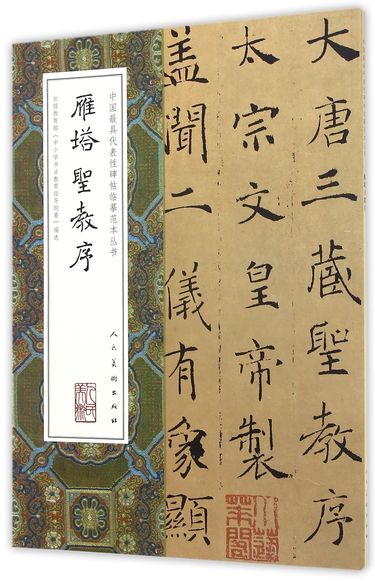 大唐三藏聖教序
太宗文皇帝製
蓋聞二儀有象顯
中国最具代表性碑帖临摹范本丛书
雁塔聖教序
依据教育部《中小学书法教育指导纲要》编选
人民美术出版社